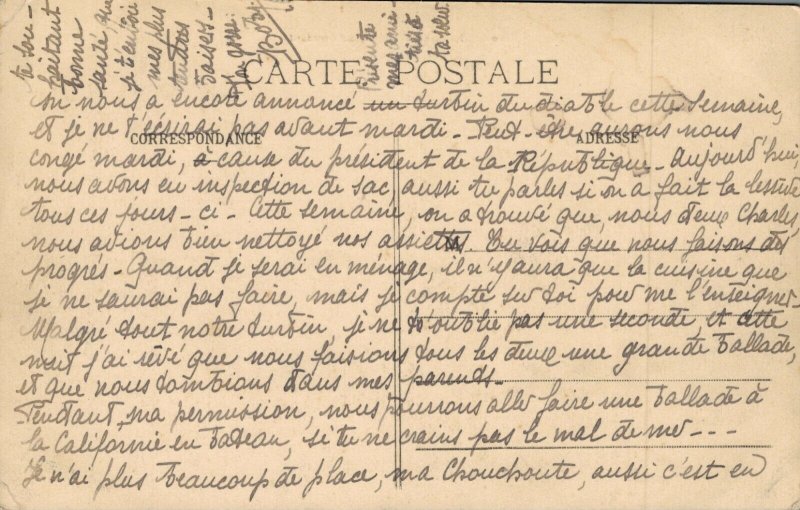 CARTE POSTALE
CORRESPONDANCE
ADRESSE
On nous a encore annoncé un turbin du diable cette semaine,
et je ne t'écrirai pas avant mardi - Peut-être aurons nous
congé mardi, à cause du président de la République - Aujourd'hui,
nous avons eu inspection de sac, aussi tu parles si on a fait la lessive
tous ces jours-ci - Cette semaine, on a trouvé que, nous deux Charles,
nous avions bien nettoyé nos assiettes. Tu vois que nous faisons des
progrés - Quand je serai en ménage, il n'y aura que la cuisine que
je ne saurai pas faire, mais je compte sur toi pour me l'enseigner -
Malgré tout notre turbin, je ne t'oublie pas une seconde, et cette
nuit j'ai rêvé que nous faisions tous les deux une grande ballade,
et que nous tombions dans mes parents -
Pendant ma permission, nous pourrons aller faire une ballade à
la Californie en bateau, si tu ne crains pas le mal de mer - - -
Je n'ai plus beaucoup de place, ma Chouchoute, aussi c'est en
te sou-
haitant
bonne
santé, que
je t'envoie
mes plus
tendres
baisers -
Ton gosse
Présente
mes ami-
tiés à
ta sœur